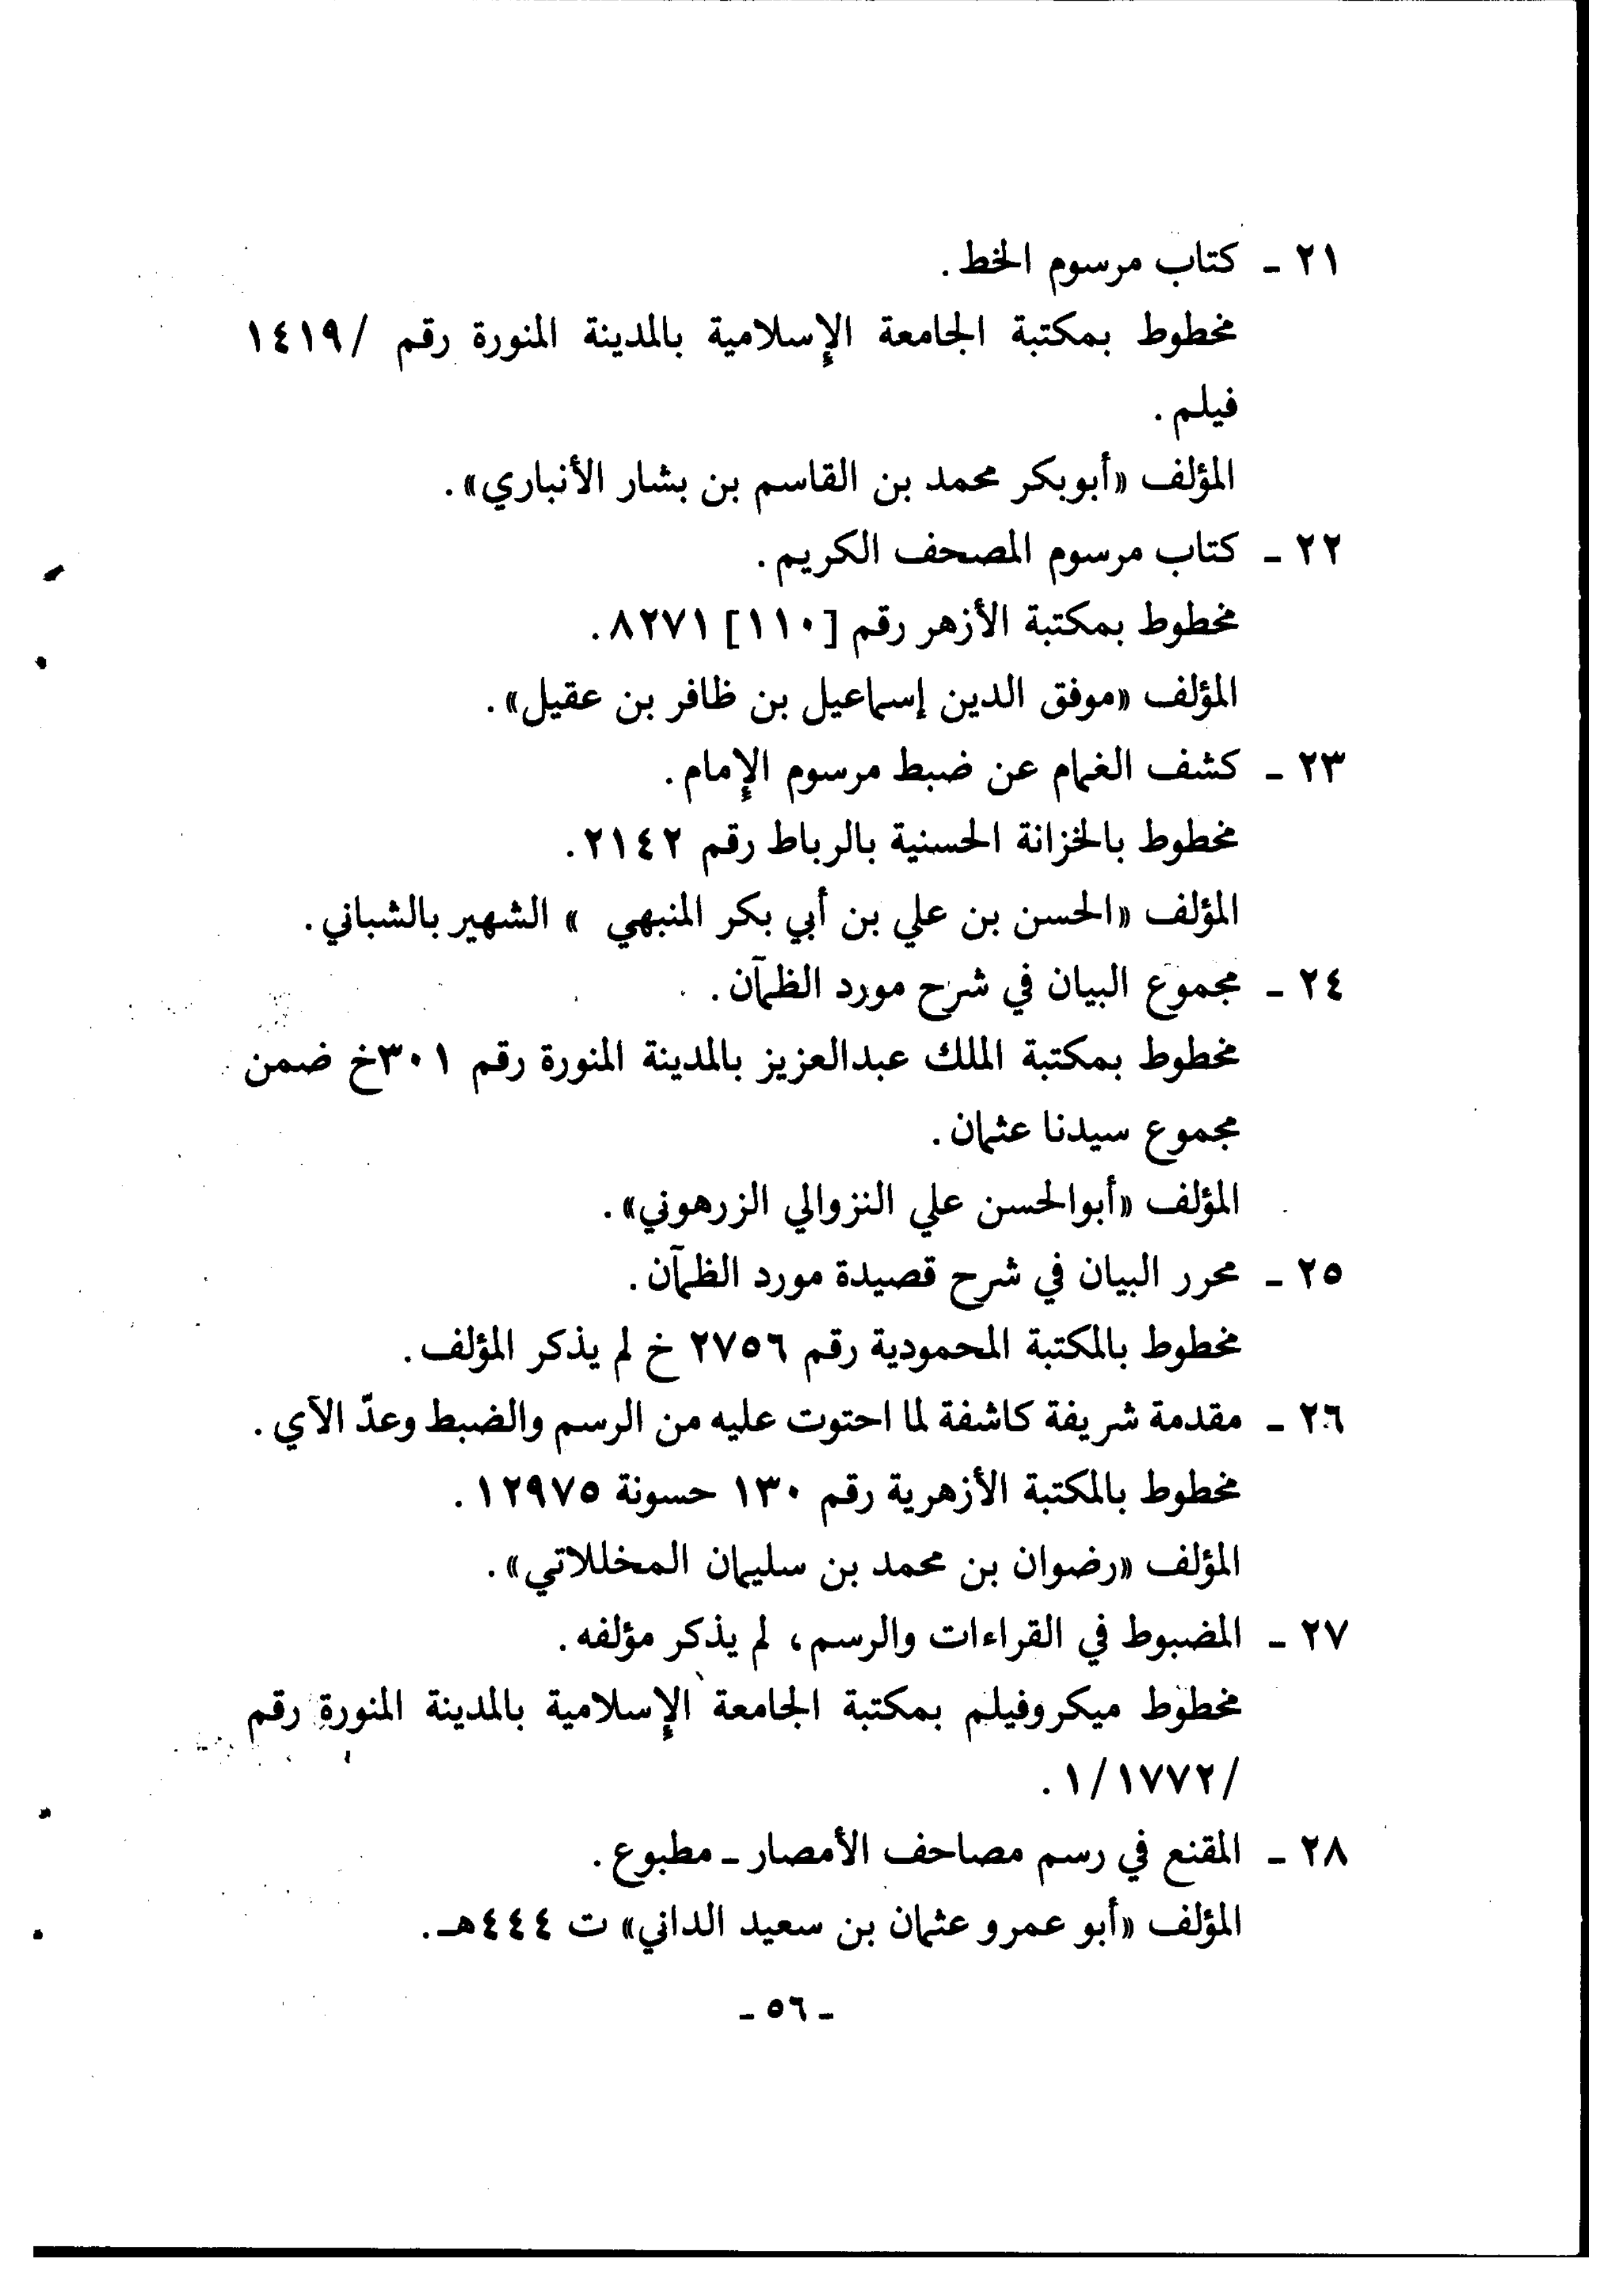 ٢١ ـ كتاب مرسوم الخط.
مخطوط بمكتبة الجامعة الإسلامية بالمدينة المنورة رقم /١٤١٩
فيلم.
المؤلف «أبوبكر محمد بن القاسم بن بشار الأنباري».
٢٢ ـ كتاب مرسوم المصحف الكريم.
مخطوط بمكتبة الأزهر رقم [١١٠] ٨٢٧١.
المؤلف «موفق الدين إسماعيل بن ظافر بن عقيل».
٢٣ ـ كشف الغمام عن ضبط مرسوم الإمام.
مخطوط بالخزانة الحسنية بالرباط رقم ٢١٤٢.
المؤلف «الحسن بن علي بن أبي بكر المنبهي » الشهير بالشباني.
٢٤ ـ مجموع البيان في شرح مورد الظمآن.
مخطوط بمكتبة الملك عبدالعزيز بالمدينة المنورة رقم ٣٠١خ ضمن
مجموع سيدنا عثمان.
المؤلف «أبوالحسن علي النزوالي الزرهوني».
٢٥ ـ محرر البيان في شرح قصيدة مورد الظمآن.
مخطوط بالمكتبة المحمودية رقم ٢٧٥٦ خ لم يذكر المؤلف.
٢٦ ـ مقدمة شريفة كاشفة لما احتوت عليه من الرسم والضبط وعدّ الآي.
مخطوط بالمكتبة الأزهرية رقم ١٣٠ حسونة ١٢٩٧٥.
المؤلف «رضوان بن محمد بن سليمان المخللاتي».
٢٧ ـ المضبوط في القراءات والرسم، لم يذكر مؤلفه.
مخطوط ميكروفيلم بمكتبة الجامعة الإسلامية بالمدينة المنورة رقم
/١/١٧٧٢.
٢٨ ـ المقنع في رسم مصاحف الأمصار ـ مطبوع.
المؤلف «أبو عمرو عثمان بن سعيد الداني» ت ٤٤٤هـ.
ـ ٥٦ ـ